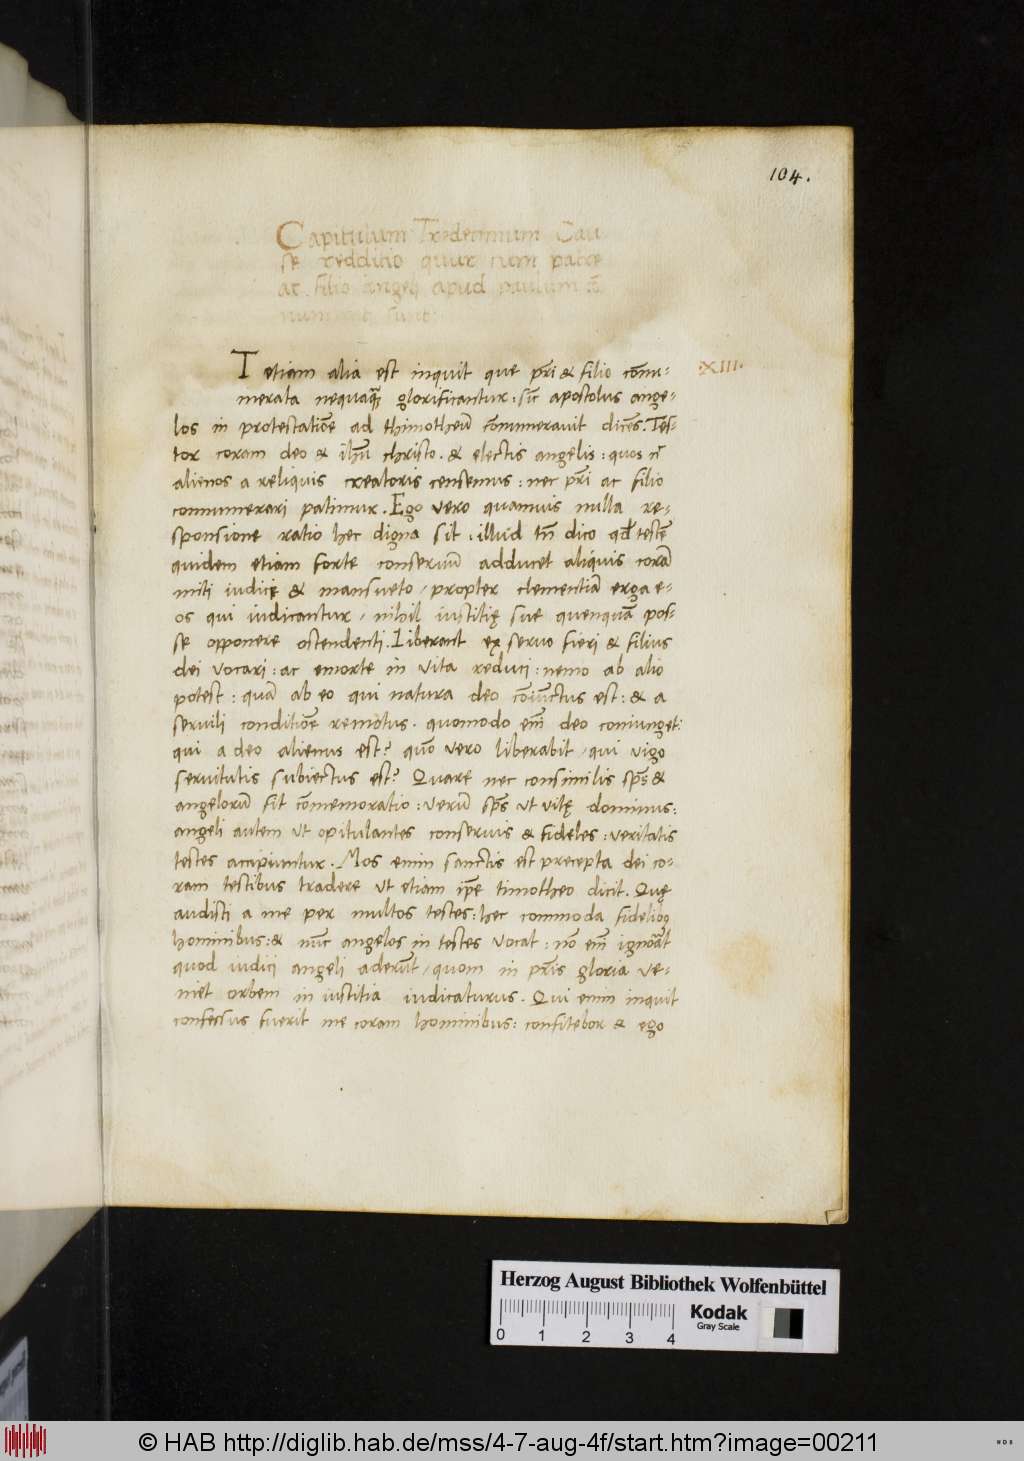 104.
Capitulum Tredecimum Cau
se redditio quur cum patre
ac filio angeli apud paulum cō
numerati sunt:
T etiam alia est inquit que pr̄i & filio cōnu-
merata nequaq̄ glorificantur: sic̄ apostolus ange-
los in protestatiōe ad thimotheū cōnumerauit dicēs. Tes-
tor coram deo & ihū christo. & electis angelis: quos
alienos a reliquis creatoris censemus: nec pr̄i ac filio
connumerari patimur. Ego vero quamuis nulla re-
sponsione ratio hec digna sit, illud tn̄ dico qd̄ testē
quidem etiam forte conseruū adducet aliquis corā
miti iudicę & mansueto / propter clementiā erga e-
os qui iudicantur / nihil iustitię sue quenquā pos-
se opponere ostendenti. Liberant ex seruo fieri & filius
dei vocari: ac emorte in vita reduci: nemo ab alio
potest: quā ab eo qui natura deo cōiūctus est: & a
seruili conditiōe remotus. quomodo em̄ deo coniunget:
qui a deo alienus est? quō vero liberabit / qui vigo
seruitutis subiectus est? Quare nec consimilis sp̄s &
angelorū fit cōmemoratio: verū sp̄s ut vitę dominus:
angeli autem ut opitulantes conseruis & fideles: veritatis
testes accipiuntur. Mos enim sanctis est precepta dei co-
ram testibus tradere ut etiam ip̄e timotheo dicit. Quę
audisti a me per multos testes: hec commoda fidelibꝫ
hominibus: & nūc angelos in testes vocat: nō em̄ ignorāt
quod iudici angeli aderūt / quom in pr̄is gloria ve-
niet orbem in iustitia iudicaturus. Qui enim inquit
confessus fuerit me coram hominibus: confitebor & ego
·XIII·
Herzog August Bibliothek Wolfenbüttel
0 1 2 3 4
Kodak
Gray Scale
© HAB http://diglib.hab.de/mss/4-7-aug-4f/start.htm?image=00211